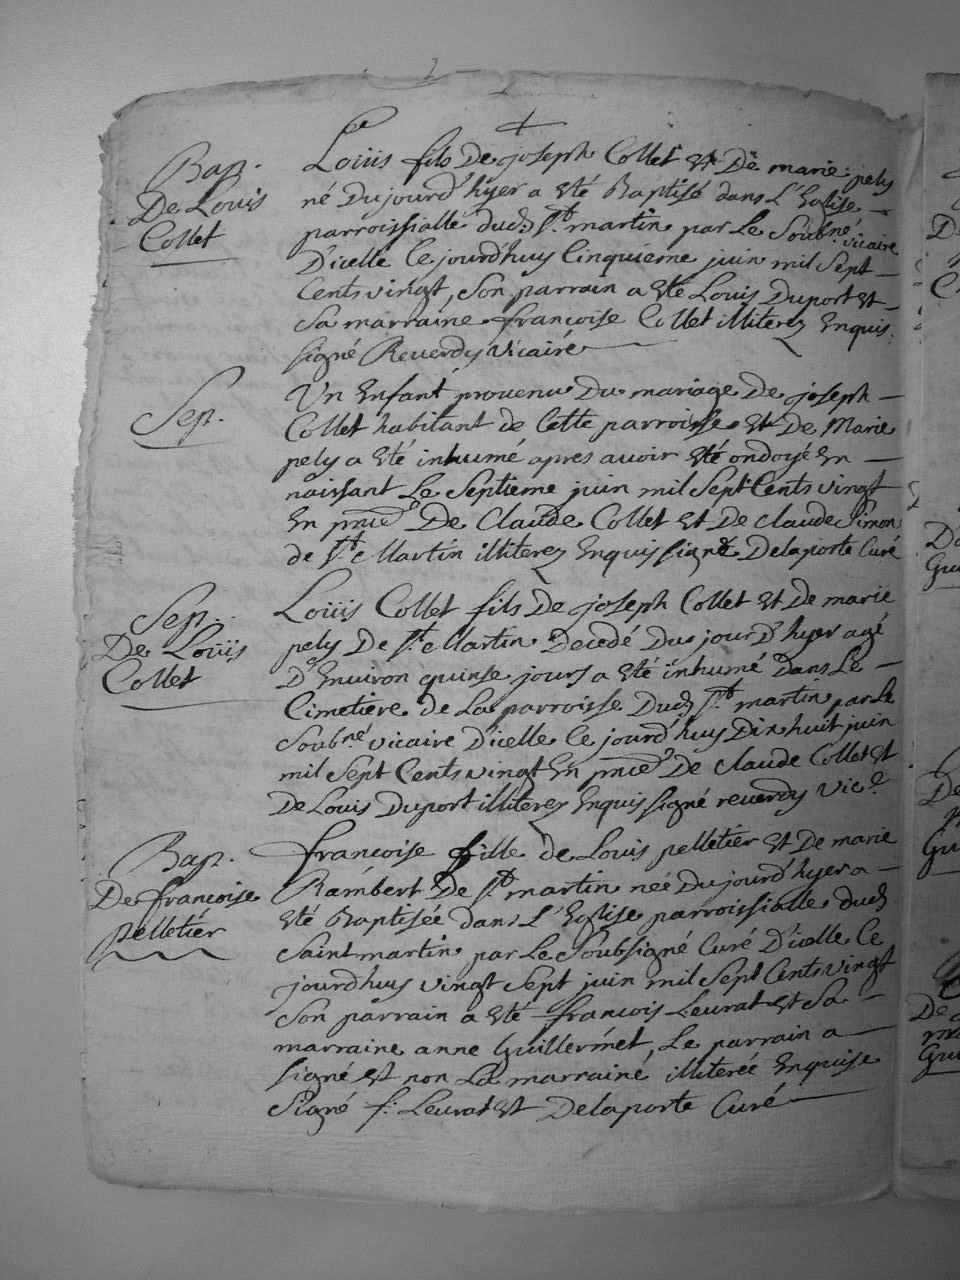 Bap.
De Loüis
Collet
Loüis fils De joseph Collet et De marie pely
né Dujourd'hyer a eté Baptisé dans L'Eglise
parroissialle dud. St. martin par Le Soubné. vicaire
D'icelle Ce jourd'huy Cinquieme juin mil Sept
Cents vingt, Son parrain a eté Louis Duport et
Sa marraine françoise Collet illiterez Enquis
signé Reuerdy vicaire
Sep.
Un Enfant prouenu Du mariage De joseph
Collet habitant de Cette parroisse et De Marie
pely a eté inhumé apres auoir eté ondoyé En
naissant Le Septieme juin mil Sept Cents vingt
En pnce De Claude Collet et De claude Simon
de St. Martin illiterez Enquis signé Delaporte Curé
Sep.
De Loüis
Collet
Loüis Collet fils De joseph Collet et De marie
pely De St. Martin Decedé Du jour D'hyer agé
D'Enuiron quinse jours a eté inhumé Dans Le
Cimetiere de La parroisse Dud. St. martin par Le
Soubné. vicaire D'icelle Ce jourd'huy Dix huit juin
mil Sept Cents vingt En pnce De Claude Collet et
De Louis Duport illiterez Enquis signé reuerdy vice.
Bap.
De françoise
pelletier
françoise fille de Louis pelletier et De marie
Rambert De St. martin née Dujourd'hyer a
eté Baptisée dans L'Eglise parroissialle dud.
Saint martin par Le Soubsigné Curé D'icelle Ce
jourd'huy vingt Sept juin mil Sept Cents vingt
Son parrain a eté françois Leurat et Sa
marraine anne Guillermet, Le parrain a
signé et non La marraine, illiterée Enquise
Signé f: Leurat et Delaporte Curé